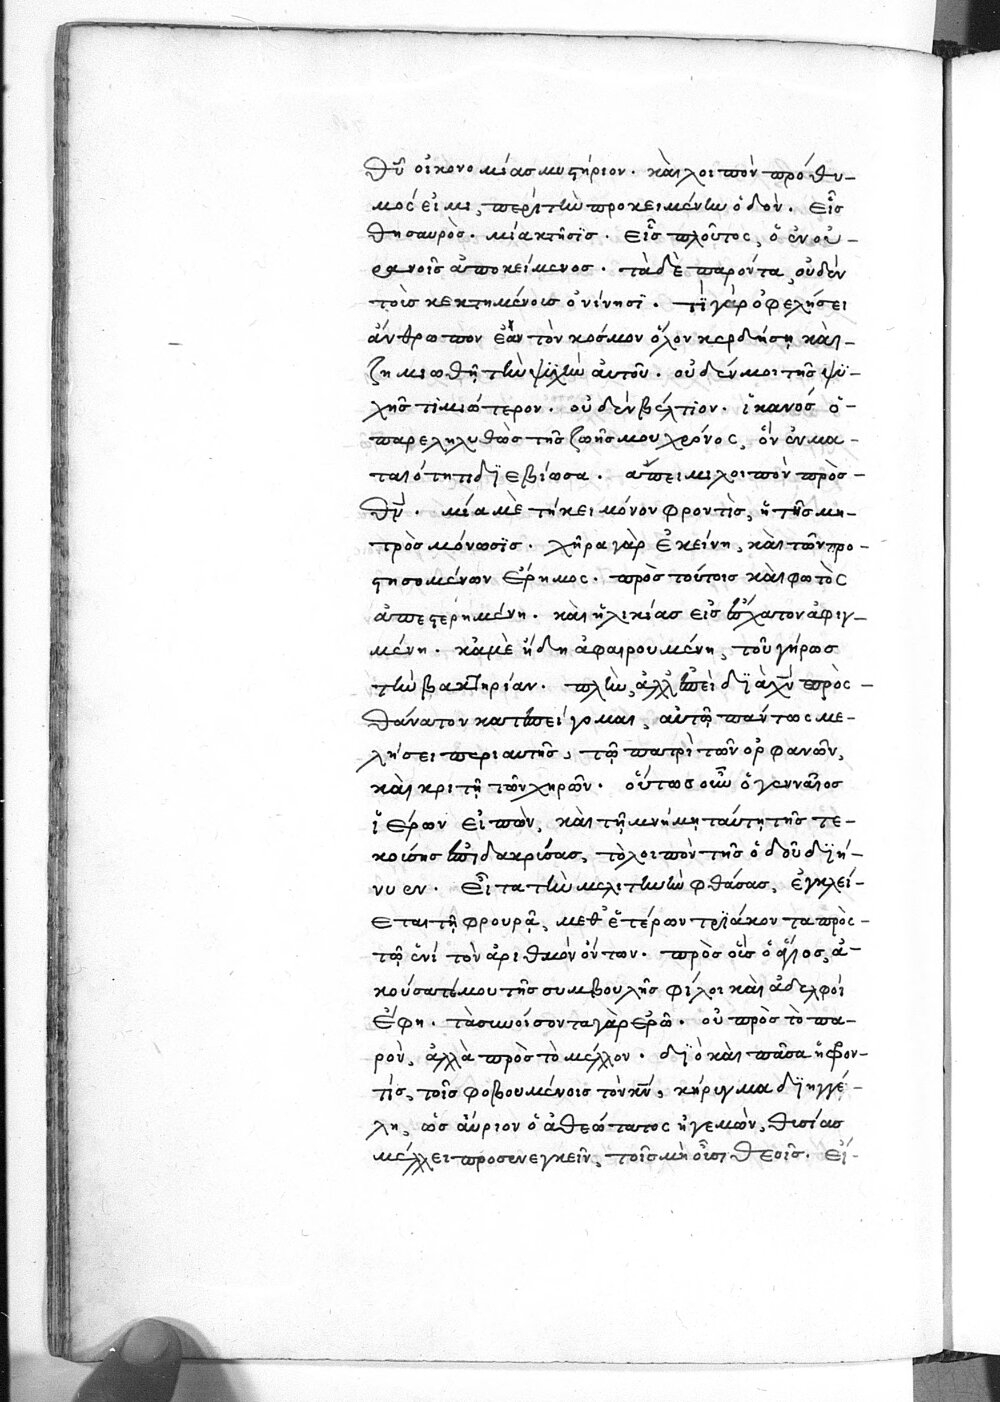 θῦ οἰκονομίας μυστήριον. καὶ λοιπὸν πρόθυ-
μός εἰμι, περὶ τὴν προκειμένην ὁδὸν. εἷς
θησαυρὸς. μία κτῆσϊς. εἷς πλοῦτος, ὁ ἐν οὐ-
ρανοῖς ἀποκείμενος. τὰ δὲ παρόντα, οὐδὲν
τοῖς κεκτημένοις ὀνίνησϊ. τί γὰρ ὀφελήσει
ἄνθρωπον ἐὰν τὸν κόσμον ὅλον κερδήσῃ καὶ
ζημιωθῇ τὴν ψϋχὴν αὐτοῦ. οὐδέν μοι τῆς ψϋ-
χῆς τιμιώτερον. οὐδὲν βέλτϊον. ἱκανός ὁ
παρεληλυθὼς τῆς ζωῆς μου χρόνος, ὅν ἐν μα-
ταιότητι δϊεβίωσα. ἄπειμι λοιπὸν πρὸς
θν. μία μὲ τήκει μόνον φροντὶς, ἡ τῆς μη-
τρὸς μόνωσϊς. χῆρα γὰρ ἐκείνη, καὶ τῶν προ-
στησομένων ἔρημος. πρὸς τούτοις καὶ φωτὸς
ἀπεστερημένη. καὶ ἡλικίας εἰς ἔσχατον ἀφιγ-
μένη. κἀμὲ ἤδη ἀφαιρουμένη, τοῦ γήρως
τὴν βακτηρίαν. πλὴν, ἀλλ' ἐπεὶ δϊὰ χν πρὸς
θάνατον κατεπείγομαι, αὐτῷ πάντως με-
λήσει περι αυτῆς, τῷ πατρὶ τῶν ὀρφανῶν,
καὶ κριτῇ τῶν χηρῶν. οὕτως οὖν ὁ γενναῖος
ἱέρων εἰπὼν, καὶ τῇ μνήμῃ ταύτῃ τῆς τε-
κούσης ἐπιδακρύσας, τὸ λοιπὸν τῆς ὁδοῦ δϊή-
νυεν. εἶτα τὴν μελιτηνὴν φθάσας, ἐγκλεί-
εται τῇ φρουρᾷ, μεθ' ἑτέρων τρϊάκοντα πρὸς
τῷ ἑνί τὸν ἀριθμὸν ὄντων. πρὸς οὓς ὁ ἅγιος, ἀ-
κούσατέ μου τῆς συμβουλῆς φίλοι καὶ ἀδελφοί
ἔφη. τὰ συνοίσοντα γὰρ ἐρῶ. οὐ πρὸς τὸ πα-
ρὸν, ἀλλὰ πρὸς τὸ μέλλον. δϊὸ καὶ πᾶσα ἡ φρον-
τίς, τοῖς φοβουμένοις τὸν κν, κήρυγμα δϊηγγέ-
λη, ὡς αὔριον ὁ ἀθεώτατος ἡγεμὼν, θυσίας
μέλλει προσενεγκεῖν, τοῖς μὴ οὖσι θεοῖς. εἰ-